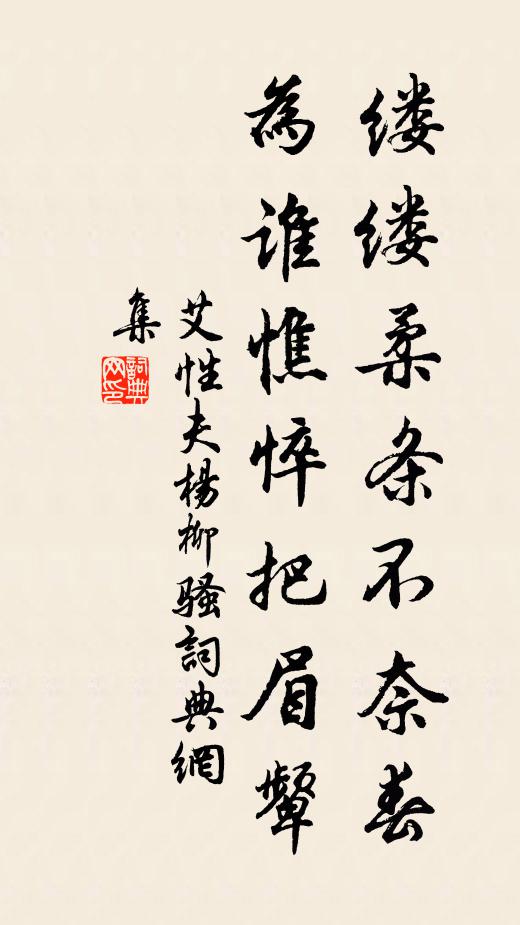 缕缕柔条不奈春
為谁憔悴把眉颦
艾性夫杨柳骚詞典網
集
詞典网印